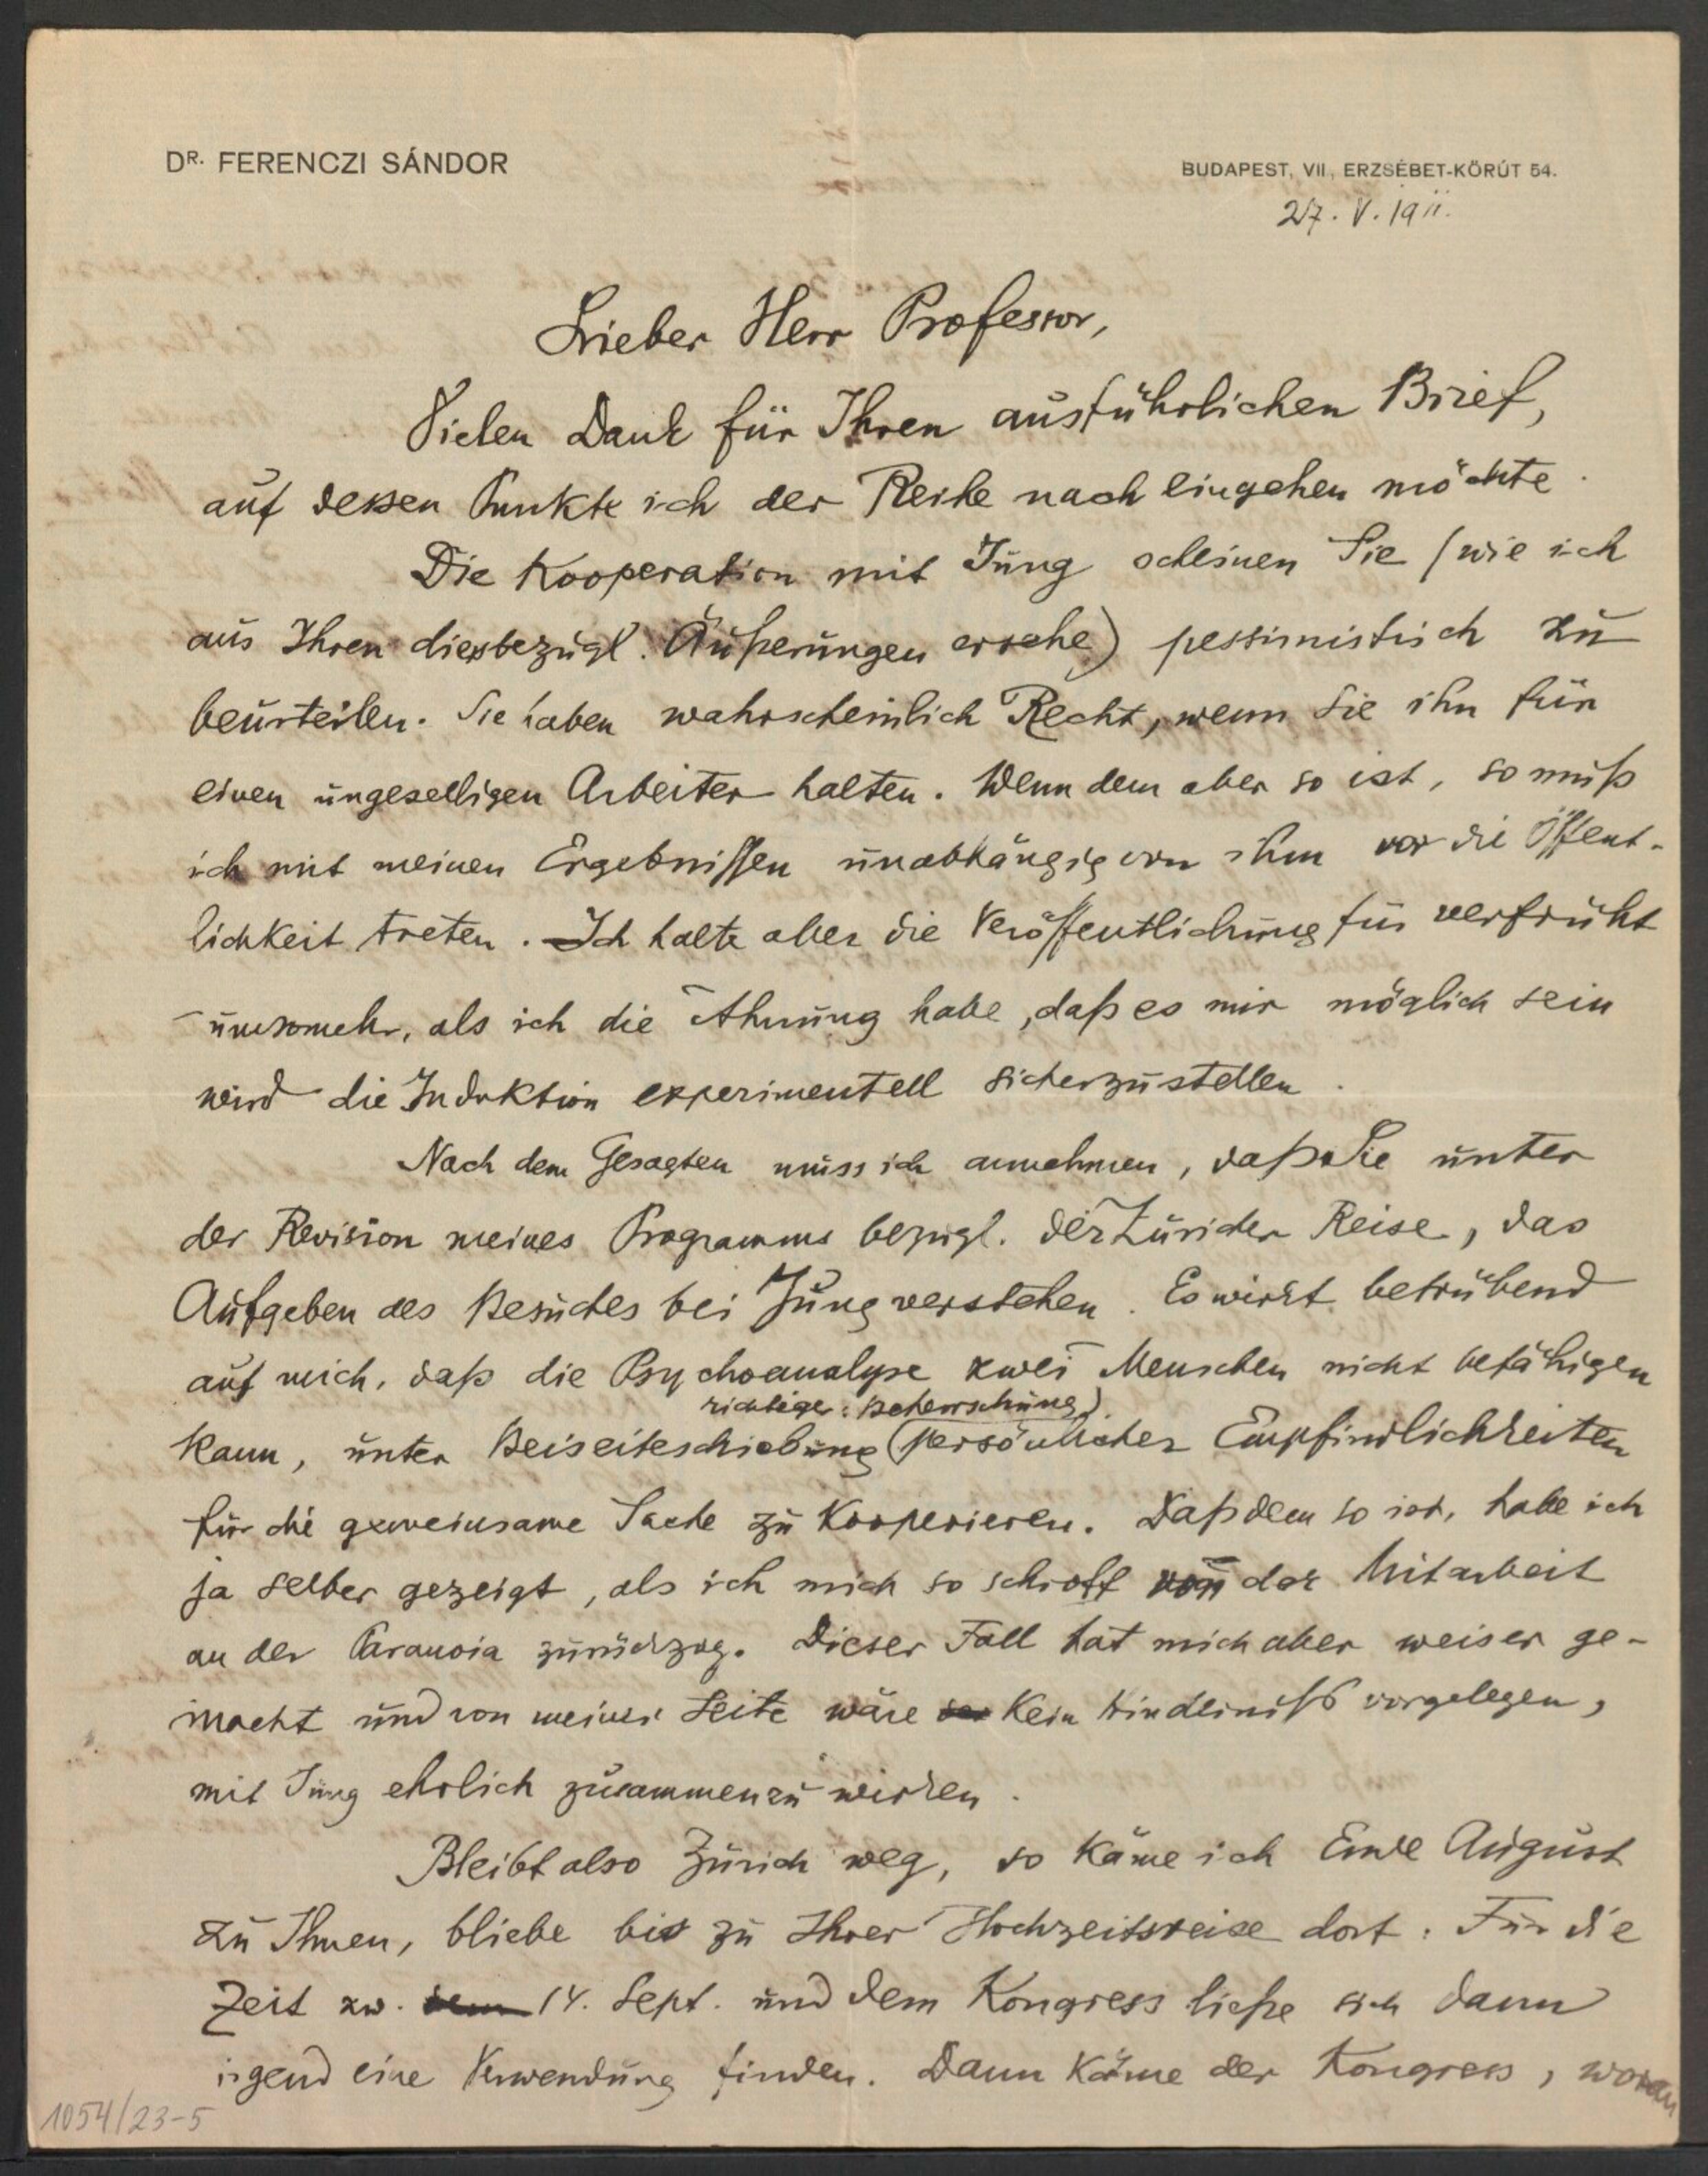 DR. FERENCZI SÁNDOR
BUDAPEST, VII, ERZSÉBET-KÖRÚT 54.
27. V. 1911.
Lieber Herr Professor,
Vielen Dank für Ihren ausführlichen Brief,
auf dessen Punkte ich der Reihe nach eingehen möchte.
Die Kooperation mit Jung scheinen Sie (wie ich
aus Ihren diesbezügl. Äußerungen ersehe) pessimistisch zu
beurteilen. Sie haben wahrscheinlich Recht, wenn Sie ihn für
einen ungeselligen Arbeiter halten. Wenn dem aber so ist, so muß
ich mit meinen Ergebnissen unabhängig von ihm vor die Öffent-
lichkeit treten. Ich halte aber die Veröffentlichung für verfrüht
umsomehr, als ich die Ahnung habe, daß es mir möglich sein
wird die Induktion experimentell sicherzustellen.
Nach dem Gesagten muss ich annehmen, daß Sie unter
der Revision meines Programms bezügl. der Züricher Reise, das
Aufgeben des Besuches bei Jung verstehen. Es wirkt betrübend
auf mich, daß die Psychoanalyse zwei Menschen nicht befähigen
richtiger: Beherrschung)
kann, unter Beiseiteschiebung (persönlicher Empfindlichkeiten
für die gemeinsame Sache zu kooperieren. Daß dem so ist, habe ich
ja selber gezeigt, als ich mich so schroff von der Mitarbeit
an der Paranoia zurückzog. Dieser Fall hat mich aber weiser ge-
macht und von meiner Seite wäre kein Hinderniß vorgelegen,
mit Jung ehrlich zusammenzuwirken.
Bleibt also Zürich weg, so käme ich Ende August
zu Ihnen, bliebe bis zu Ihrer Hochzeitsreise dort. Für die
Zeit zw. dem 14. Sept. und dem Kongress ließe sich dann
irgend eine Verwendung finden. Dann käme der Kongress, woran
1054/23-5